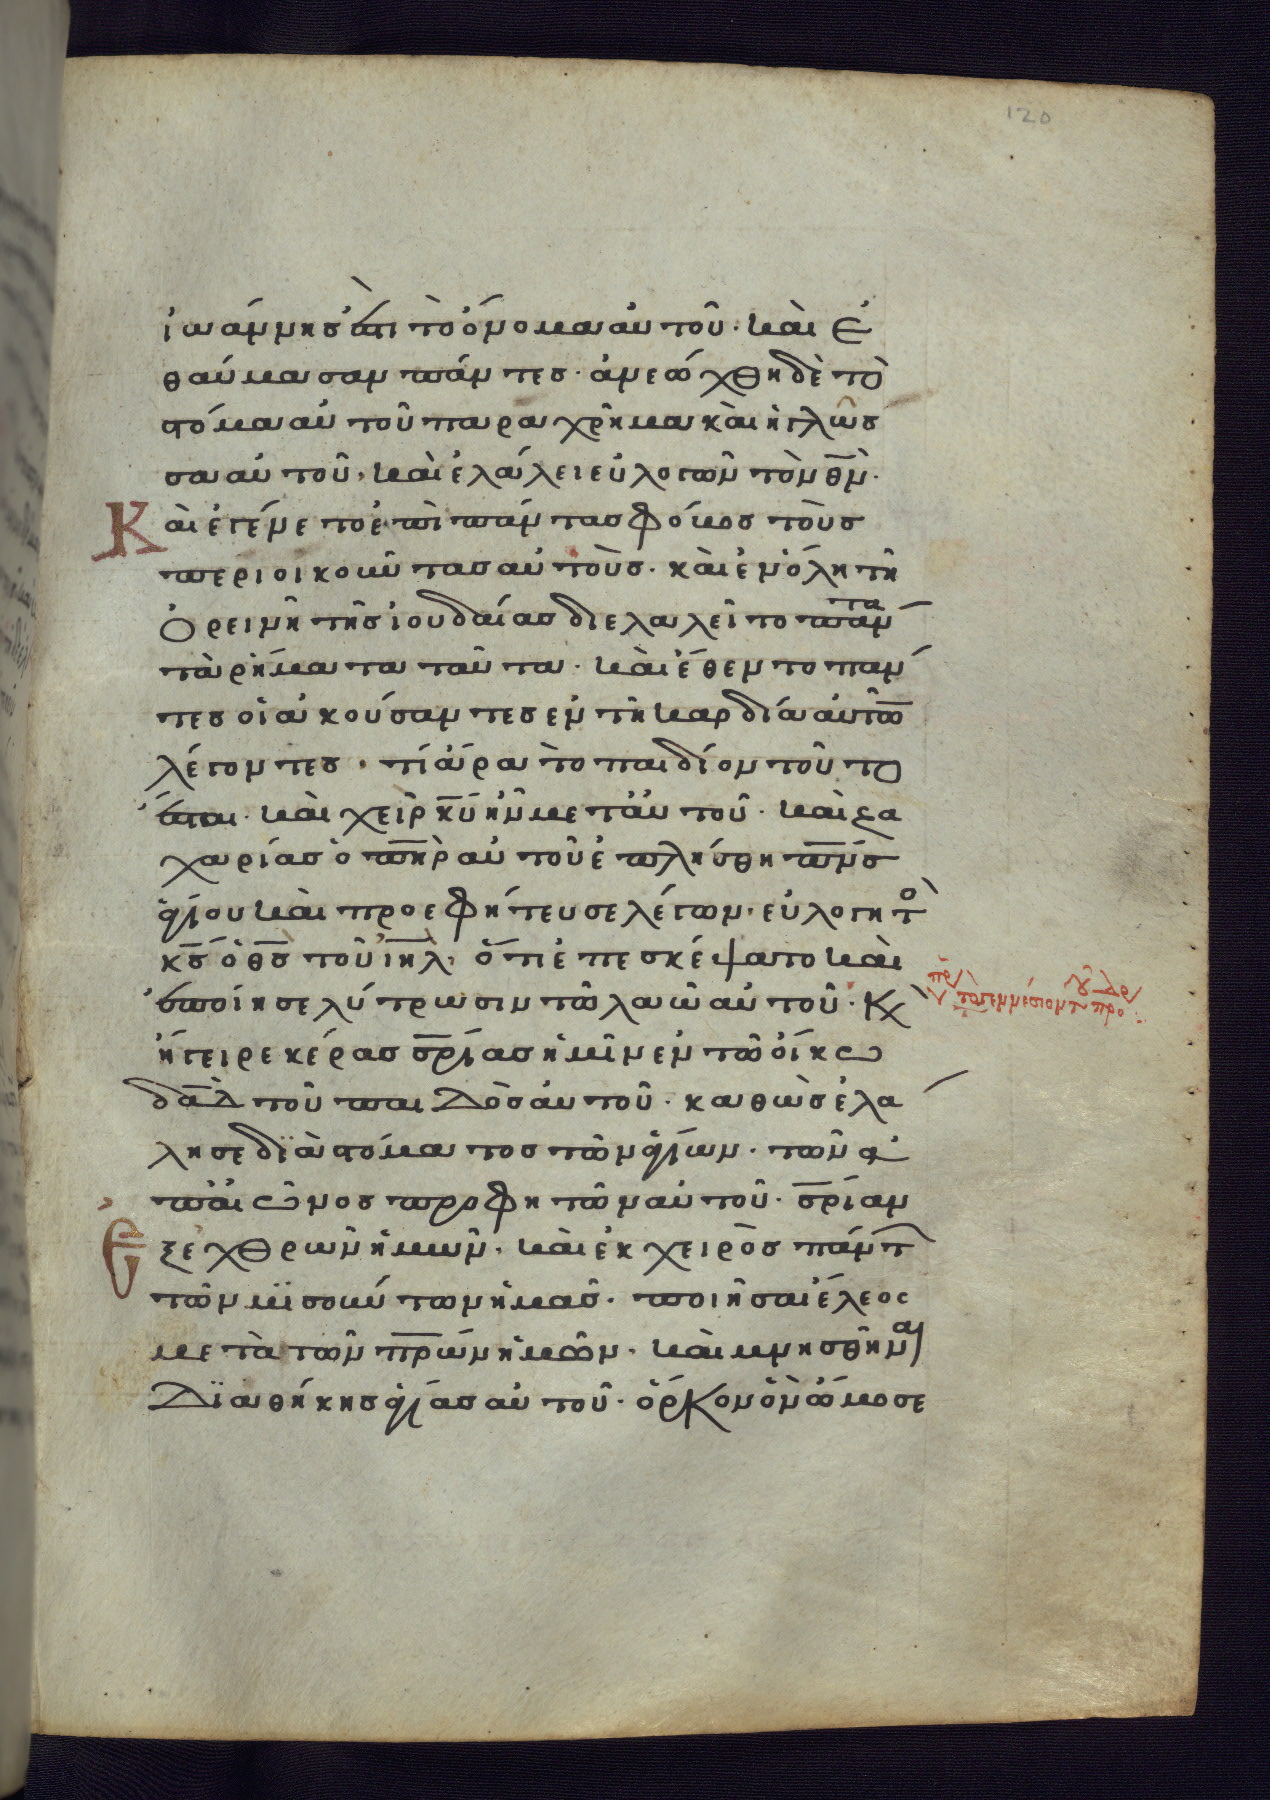 120
ἰωάννης ἐστὶ τὸ ὄνομα αὐτοῦ· καὶ ἐ
θαύμασαν πάντες· ἀνεώχθη δὲ τὸ
στόμα αὐτοῦ παραχρῆμα καὶ ἡ γλῶσ
σα αὐτοῦ, καὶ ἐλάλει εὐλογῶν τὸν θν·
Καὶ ἐγένετο ἐπὶ πάντας φόβος τοὺς
περιοικοῦντας αὐτούς· καὶ ἐν ὅλη τῆ
ὀρεινῆ τῆς ἰουδαίας διελαλεῖτο πάντα
τὰ ῥήματα ταῦτα· καὶ ἔθεντο πάν
τες οἱ ἀκούσαντες ἐν τῆ καρδία αὐτῶ
λέγοντες· τί ἄρα τὸ παιδίον τοῦτο
ἔσται· καὶ χεὶρ κυ ἦν μετ' αὐτοῦ· καὶ ζα
χαρίας ὁ πηρ αὐτοῦ ἐπλήσθη πνς
ἁγίου καὶ προεφήτευσε λέγων· εὐλογητὸ
κς ὁ θς τοῦ ιηλ, ὅτι ἐπεσκέψατο καὶ
ἐποίησε λύτρωσιν τῶ λαῶ αὐτοῦ· Κ
ἤγειρε κέρας σρίας ἡμῖν ἐν τῶ οἴκω
δαδ τοῦ παιδὸς αὐτοῦ· καθὼς ἐλά
λησε διὰ στόματος τῶν ἁγίων· τῶν ἀ
π' αἰῶνος προφητῶν αὐτοῦ· σρίαν
Ἐξ ἐχθρῶν ἡμῶν· καὶ ἐκ χειρὸς πάντ
τῶν μισούντων ἡμᾶς· ποιῆσαι ἔλεος
μετὰ τῶν πρων ἡμῶν· καὶ μνησθῆναι
διαθήκης ἁγίας αὐτοῦ· ὅρκον ὃν ὤμοσε